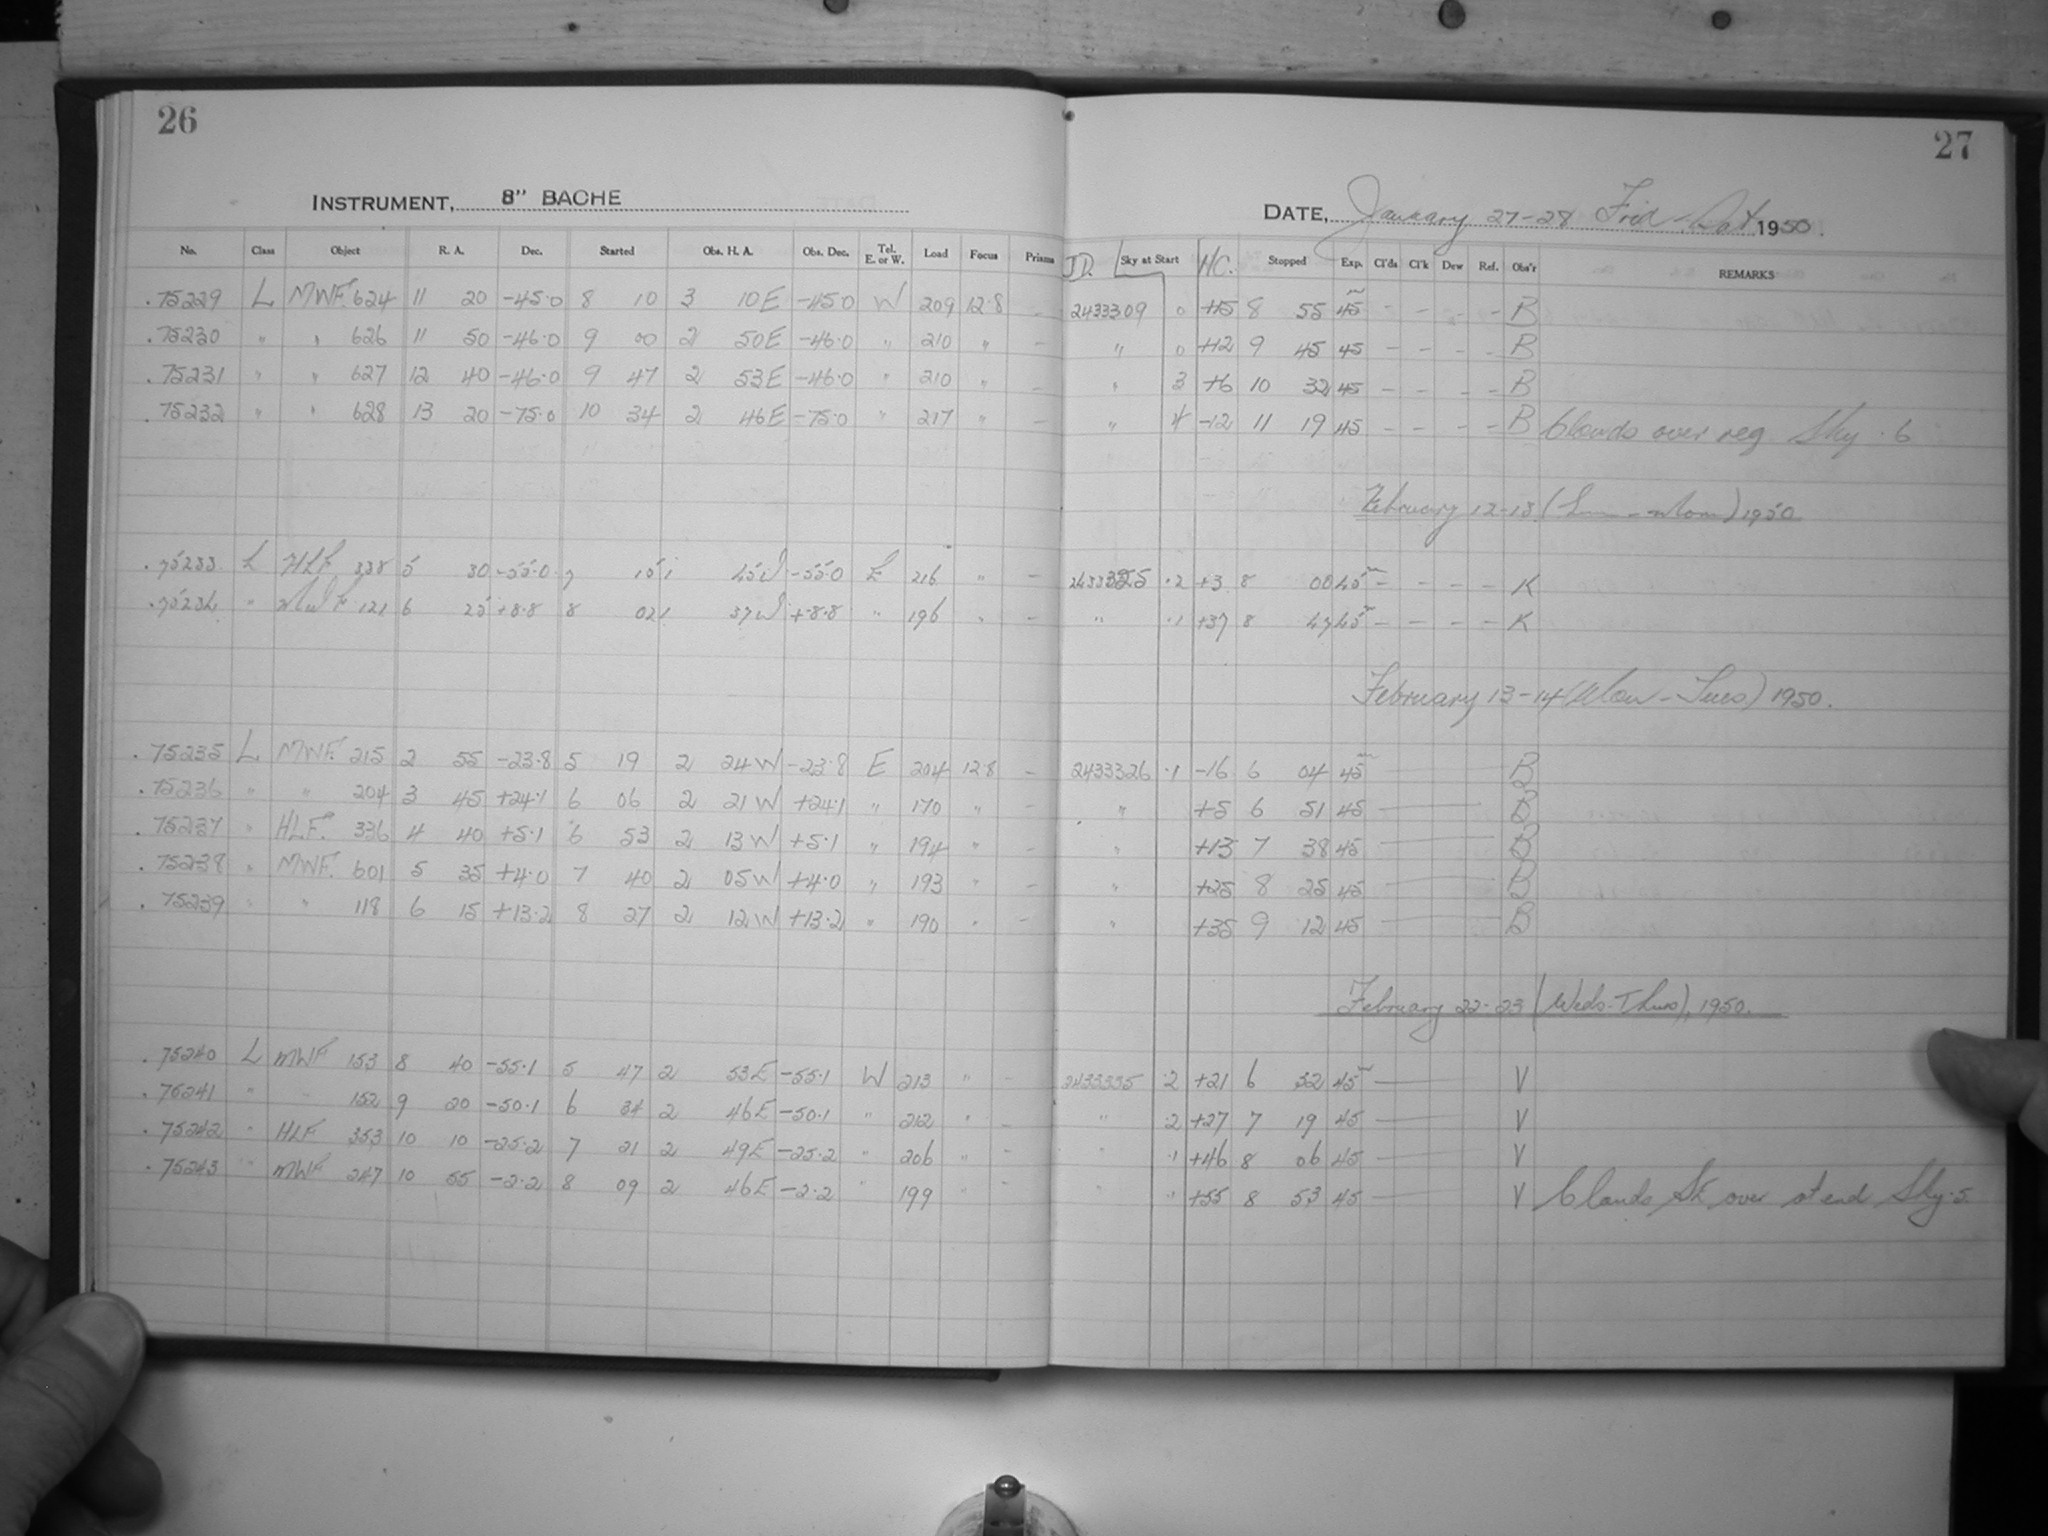 26
INSTRUMENT, 8" BACHE
No. Class Object R. A. Dec. Started Obs. H. A. Obs. Dec. Tel. E. or W. Load Focus Prisms
.75229 L MWF. 624 11 20 -45.0 8 10 3 10E -45.0 W 209 12.8 -
.75230 " " 626 11 50 -46.0 9 00 2 50E -46.0 " 210 " -
.75231 " " 627 12 40 -46.0 9 47 2 53E -46.0 " 210 " -
.75232 " " 628 13 20 -75.0 10 34 2 46E -75.0 " 217 " -
.75233 L HLF 338 5 30 -55.0 7 15 1 45W -55.0 E 216 " -
.75234 " MWF 121 6 25 +8.8 8 02 1 37W +8.8 " 196 " -
.75235 L MWF. 215 2 55 -23.8 5 19 2 24W -23.8 E 204 12.8 -
.75236 " " 204 3 45 +24.1 6 06 2 21W +24.1 " 170 " -
.75237 " HLF. 336 4 40 +5.1 6 53 2 13W +5.1 " 194 " -
.75238 " MWF. 601 5 35 +4.0 7 40 2 05W +4.0 " 193 " -
.75239 " " 118 6 15 +13.2 8 27 2 12W +13.2 " 190 " -
.75240 L MWF 153 8 40 -55.1 5 47 2 53E -55.1 W 213 " -
.75241 " " 152 9 20 -50.1 6 34 2 46E -50.1 " 212 " -
.75242 " HLF 353 10 10 -25.2 7 21 2 49E -25.2 " 206 " -
.75243 " MWF 247 10 55 -2.2 8 09 2 46E -2.2 " 199 " -
27
DATE, January 27-28 Frid - Sat 1950.
JD. Sky at Start HC. Stopped Exp. Cl'ds Cl'k Dew Ref. Obs'r REMARKS
2433309 0 +15 8 55 45m - - - - B
" 0 +12 9 45 45 - - - - B
" 3 +6 10 32 45 - - - - B
" 4 -12 11 19 45 - - - - B Clouds over reg. Sky .6
February 12-13 (Sun - Mon) 1950
2433325 .2 +3 8 00 45m - - - - K
" .1 +37 8 47 45m - - - - K
February 13-14 (Mon - Tues) 1950.
2433326 .1 -16 6 04 45m B
" +5 6 51 45 B
" +13 7 38 45 B
" +25 8 25 45 B
" +35 9 12 45 B
February 22-23 (Weds-Thurs), 1950.
2433335 .2 +21 6 32 45m V
" .2 +27 7 19 45 V
" .1 +46 8 06 45 V
" " +55 8 53 45 V Clouds over at end Sky .5